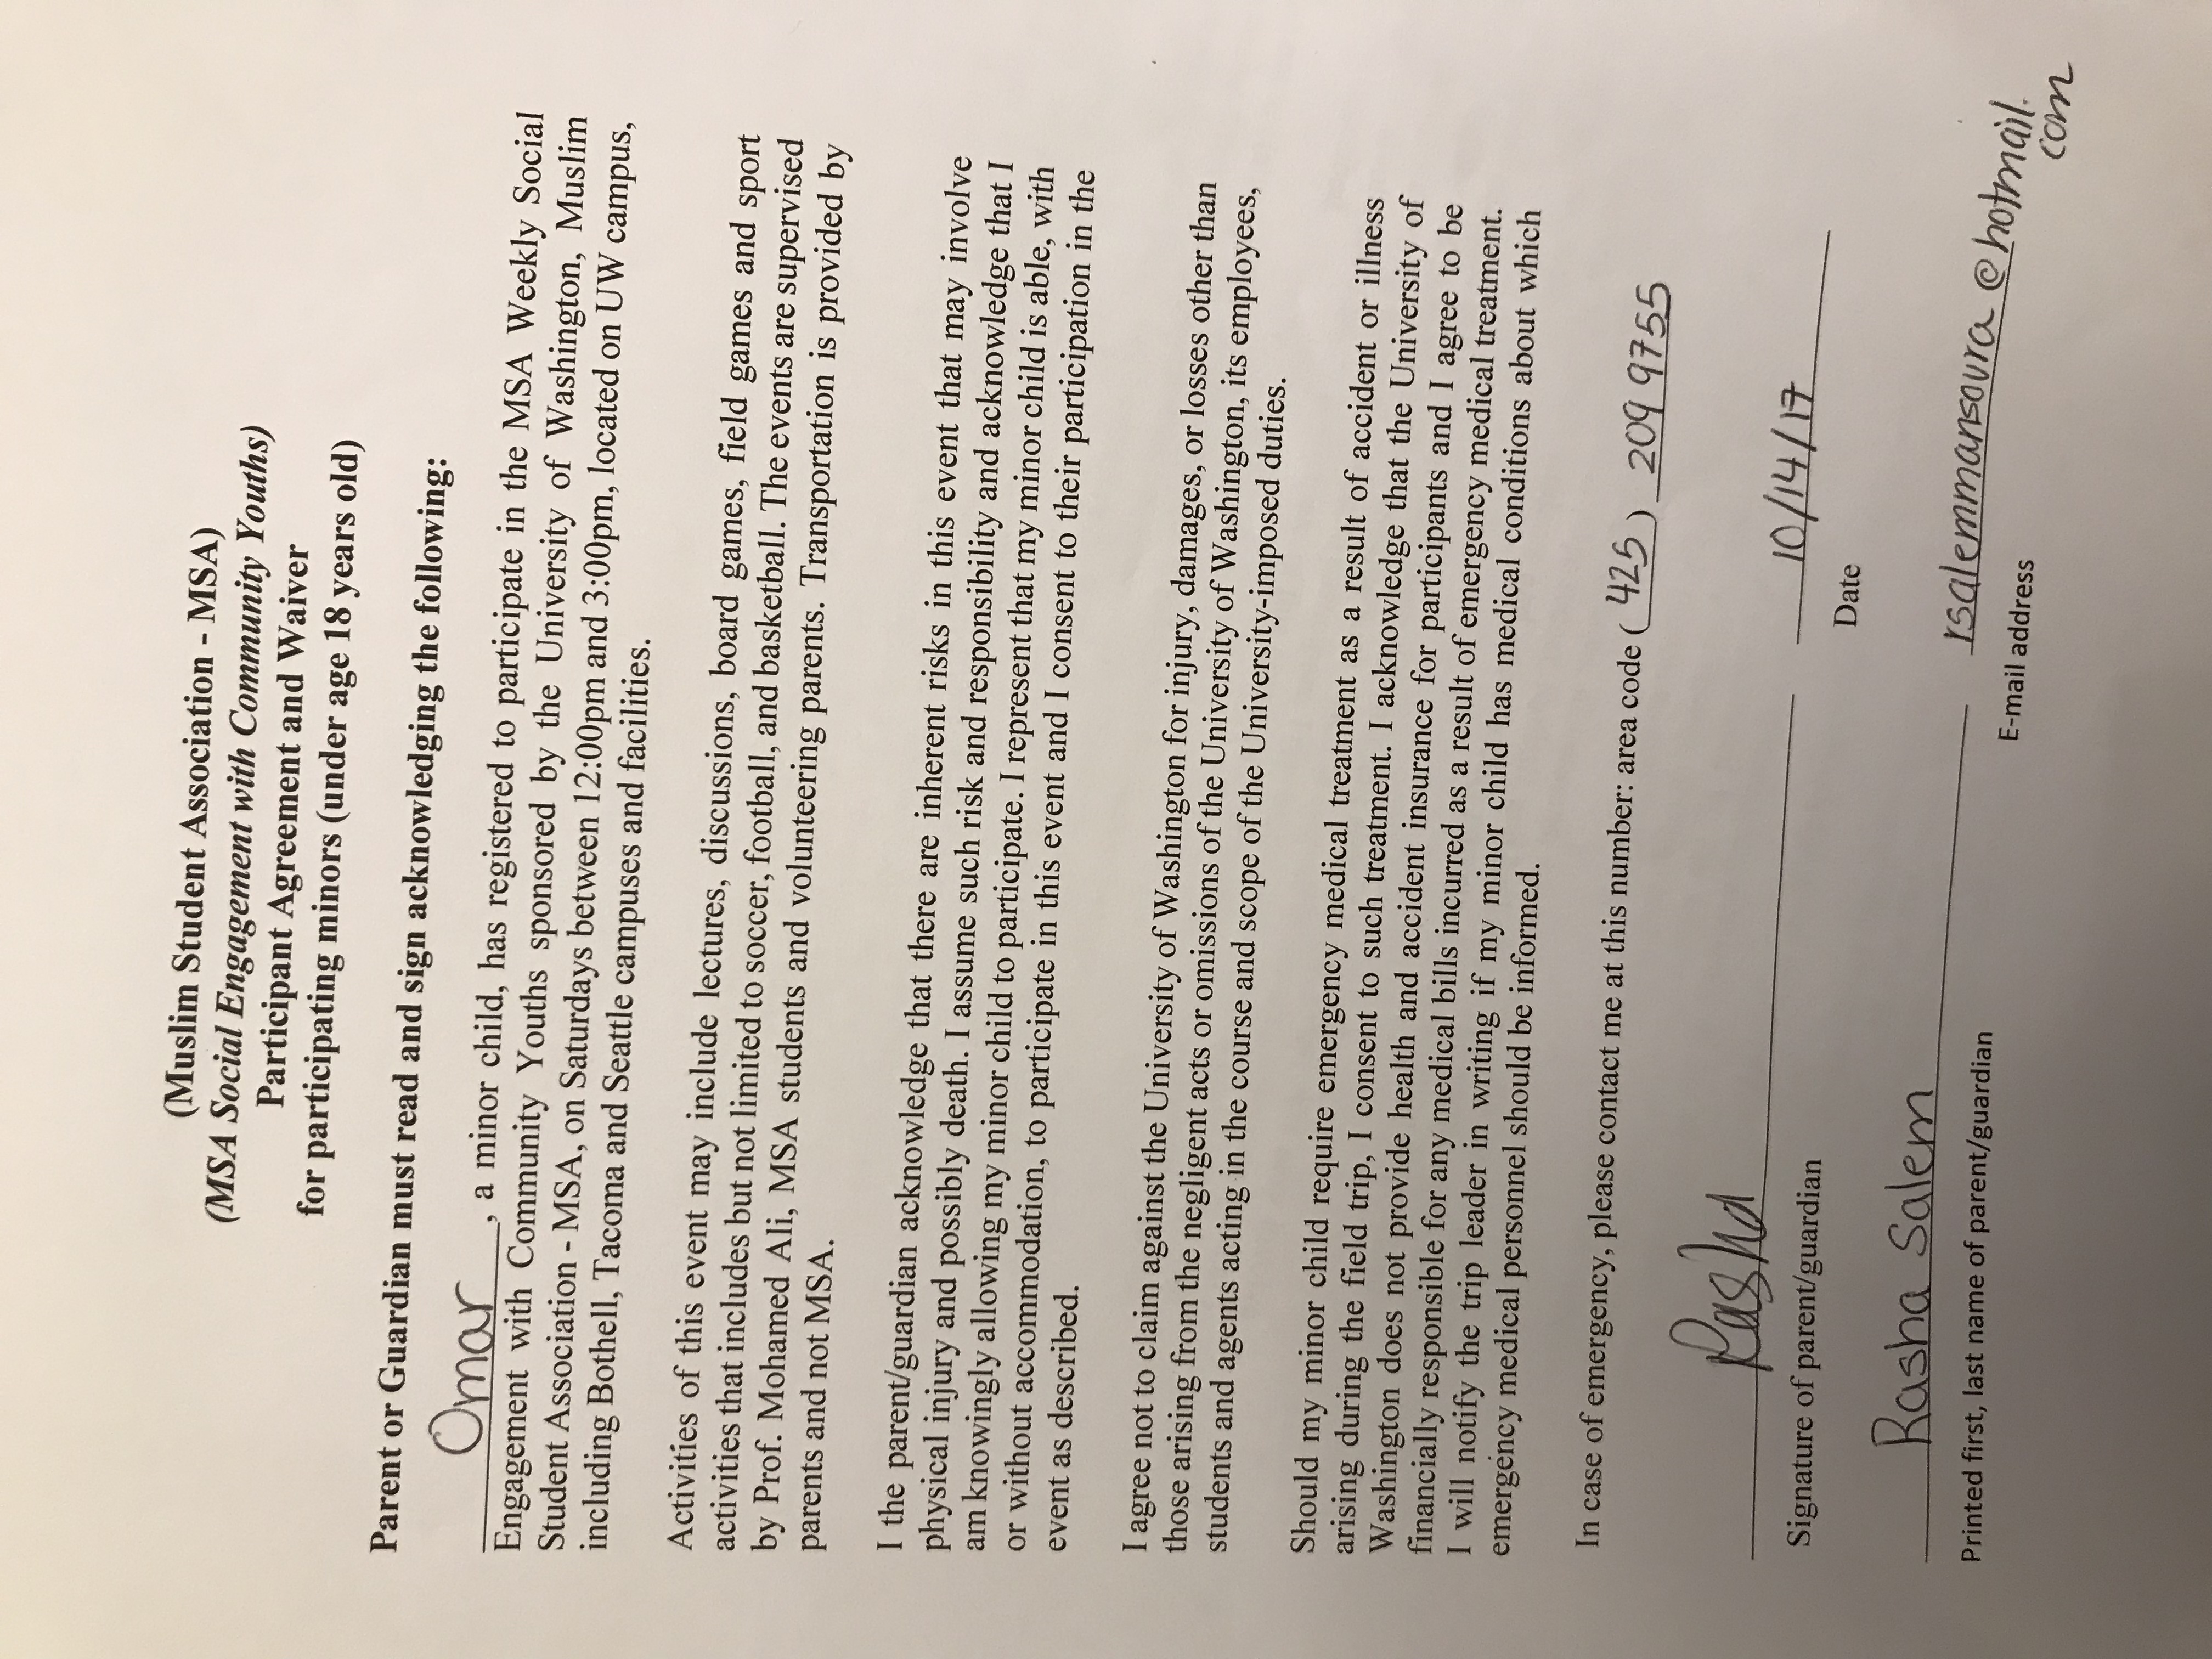 (Muslim Student Association - MSA)
(MSA Social Engagement with Community Youths)
Participant Agreement and Waiver
for participating minors (under age 18 years old)
Parent or Guardian must read and sign acknowledging the following:
Omar, a minor child, has registered to participate in the MSA Weekly Social
Engagement with Community Youths sponsored by the University of Washington, Muslim
Student Association - MSA, on Saturdays between 12:00pm and 3:00pm, located on UW campus,
including Bothell, Tacoma and Seattle campuses and facilities.
Activities of this event may include lectures, discussions, board games, field games and sport
activities that includes but not limited to soccer, football, and basketball. The events are supervised
by Prof. Mohamed Ali, MSA students and volunteering parents. Transportation is provided by
parents and not MSA.
I the parent/guardian acknowledge that there are inherent risks in this event that may involve
physical injury and possibly death. I assume such risk and responsibility and acknowledge that I
am knowingly allowing my minor child to participate. I represent that my minor child is able, with
or without accommodation, to participate in this event and I consent to their participation in the
event as described.
I agree not to claim against the University of Washington for injury, damages, or losses other than
those arising from the negligent acts or omissions of the University of Washington, its employees,
students and agents acting in the course and scope of the University-imposed duties.
Should my minor child require emergency medical treatment as a result of accident or illness
arising during the field trip, I consent to such treatment. I acknowledge that the University of
Washington does not provide health and accident insurance for participants and I agree to be
financially responsible for any medical bills incurred as a result of emergency medical treatment.
I will notify the trip leader in writing if my minor child has medical conditions about which
emergency medical personnel should be informed.
In case of emergency, please contact me at this number: area code (425) 209 9755
Rasha
10/14/17
Signature of parent/guardian
Date
Rasha Salem
rsalemmansoura@hotmail.
com
Printed first, last name of parent/guardian
E-mail address